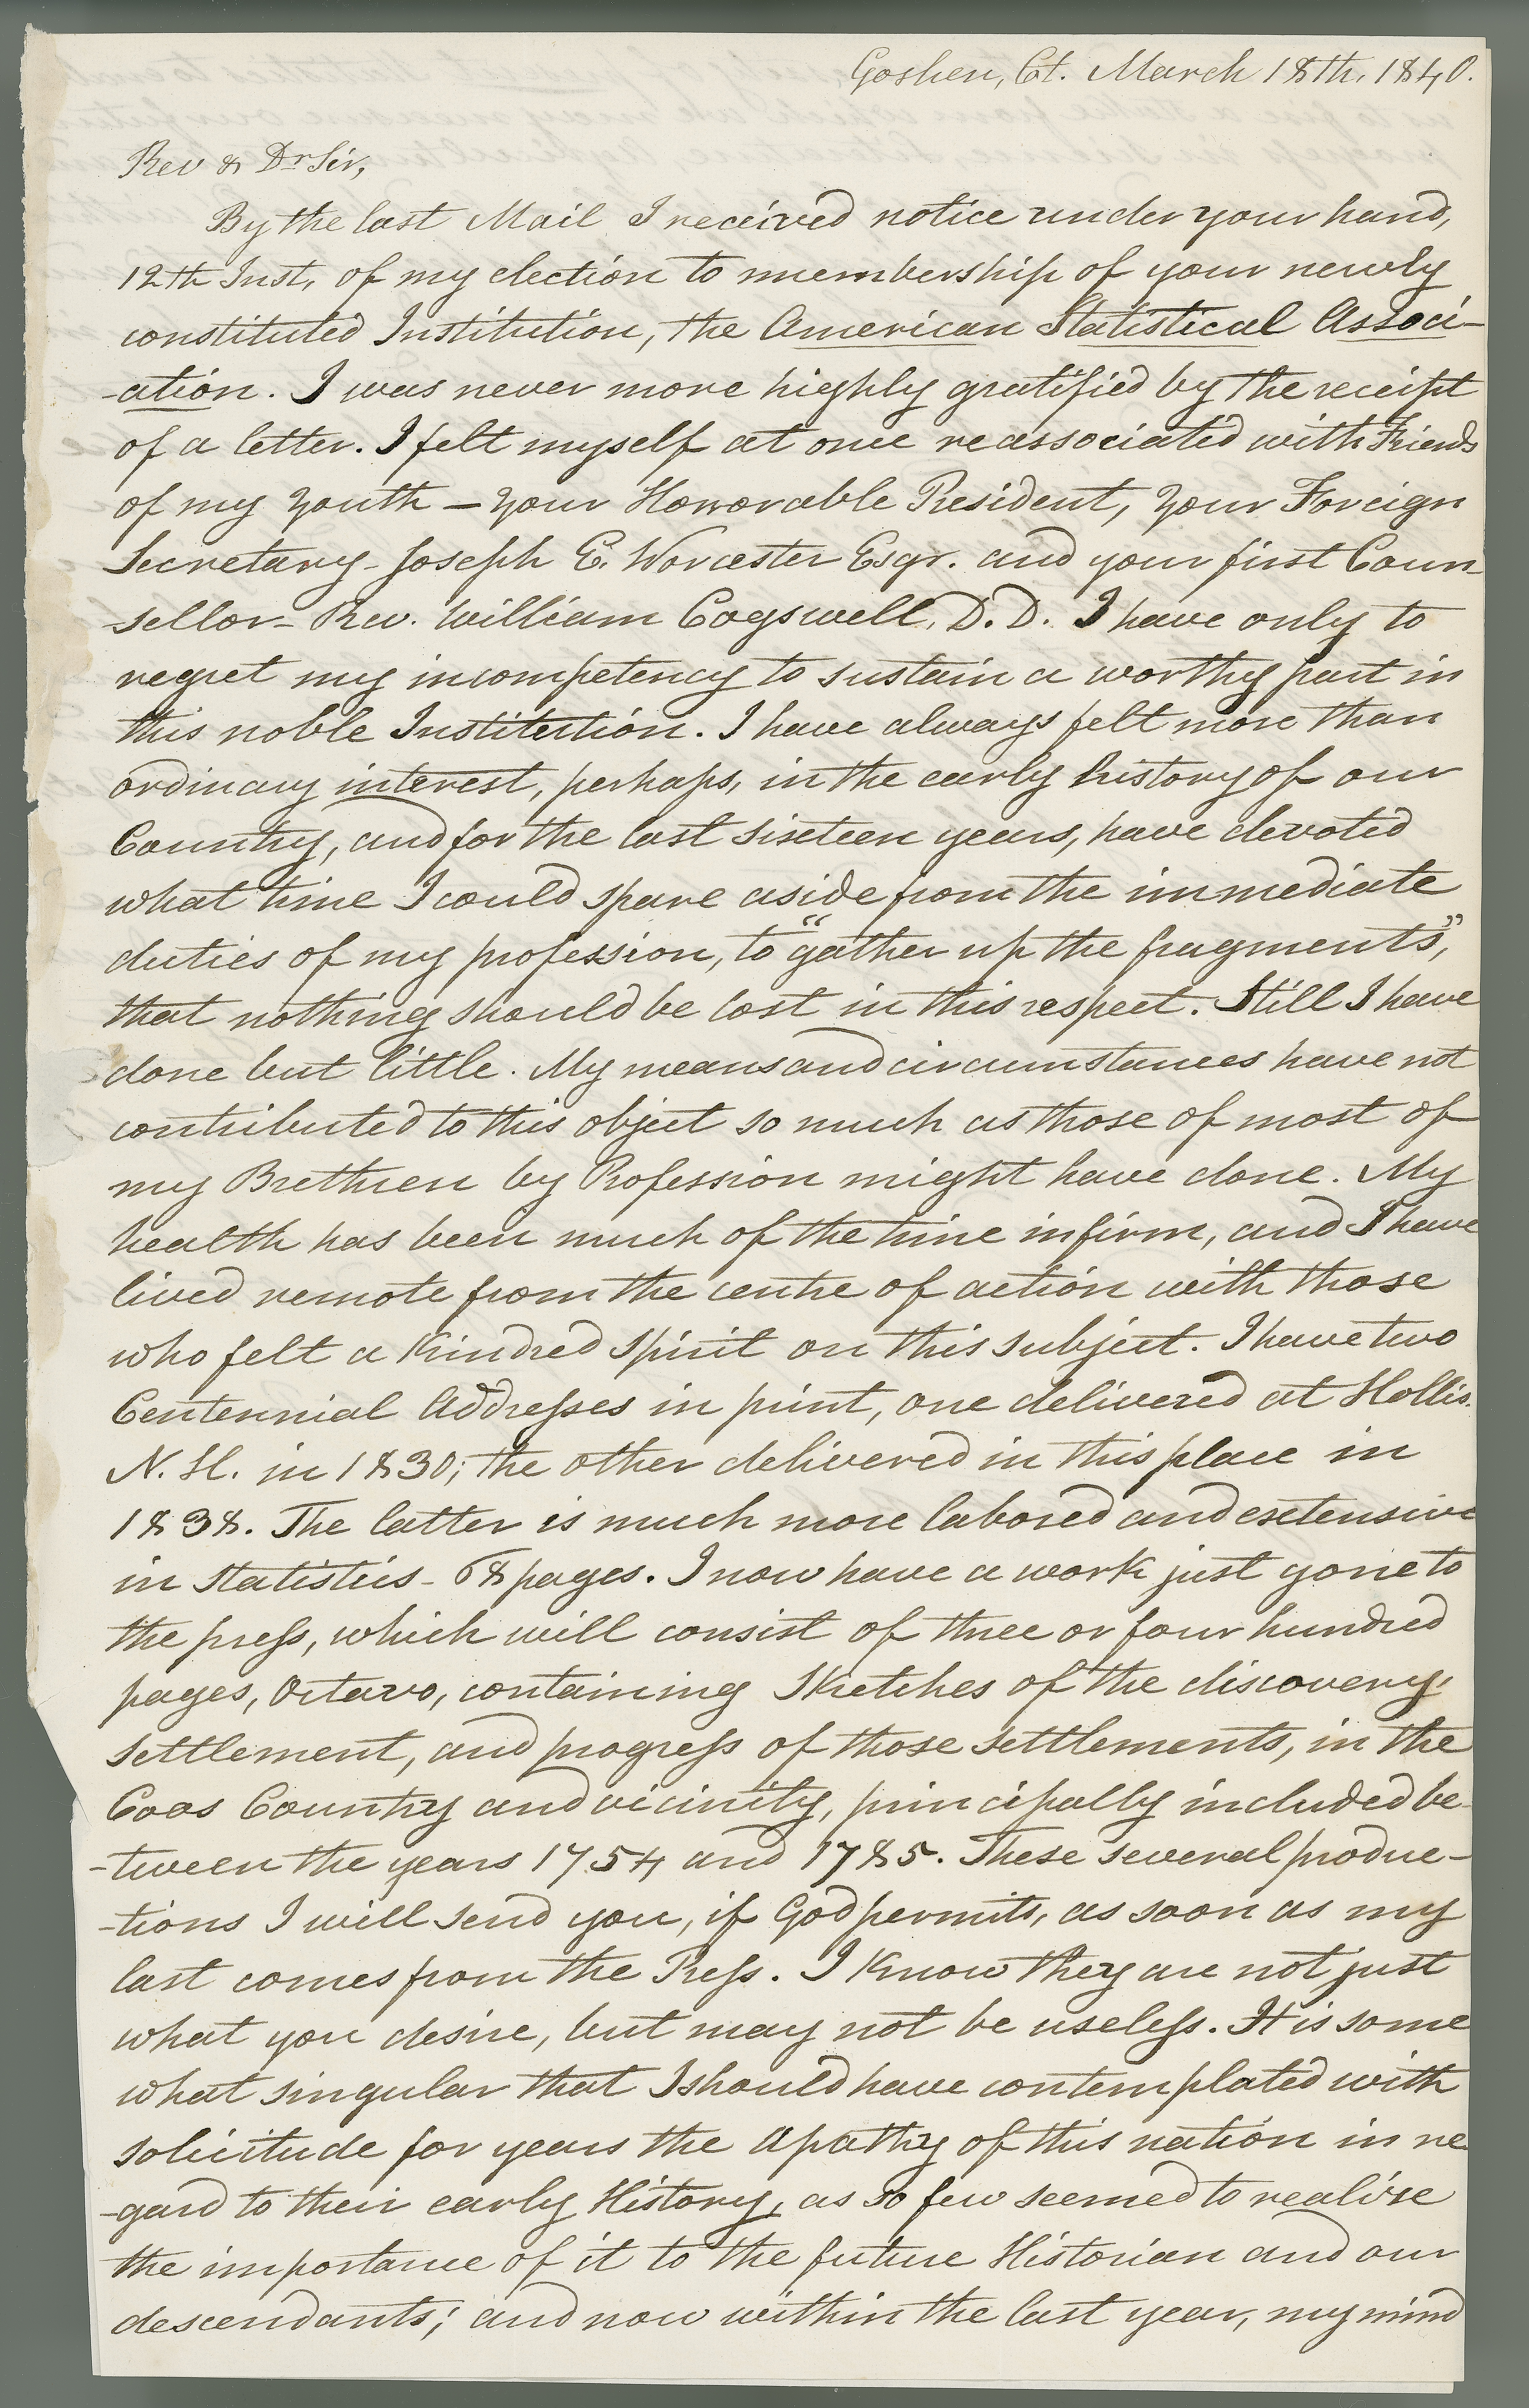 Goshen, Ct. March 18th, 1840.
Rev & Dr Sir,
By the last Mail I received notice under your hand,
12th Inst, of my election to membership of your newly
constituted Institution, the American Statistical Associ-
-ation. I was never more highly gratified by the receipt
of a letter. I felt myself at once reassociated with Friends
of my youth — your Honorable President, your Foreign
Secretary - Joseph E. Worcester Esqr. and your first Coun-
sellor - Rev. William Cogswell, D.D. I have only to
regret my incompetency to sustain a worthy part in
this noble Institution. I have always felt more than
ordinary interest, perhaps, in the early history of our
Country, and for the last sixteen years, have devoted
what time I could spare aside from the immediate
duties of my profession, to "gather up the fragments",
that nothing should be lost in this respect. Still I have
done but little. My means and circumstances have not
contributed to this object so much as those of most of
my Brethren by Profession might have done. My
health has been much of the time infirm, and I have
lived remote from the centre of action with those
who felt a kindred spirit on this subject. I have two
Centennial Addresses in print, one delivered at Hollis
N. H. in 1830; the other delivered in this place in
1838. The latter is much more labored and extensive
in Statistics - 68 pages. I now have a work just gone to
the press, which will consist of three or four hundred
pages, Octavo, containing Sketches of the discovery,
settlement, and progress of those settlements, in the
Coos Country and vicinity, principally included be-
-tween the years 1754 and 1785. These several produc-
-tions I will send you, if God permits, as soon as my
last comes from the Press. I know they are not just
what you desire, but may not be useless. It is some
what singular that I should have contemplated with
solicitude for years the apathy of this nation in re
-gard to their early History, as so few seemed to realise
the importance of it to the future Historian and our
descendants; and now within the last year, my mind